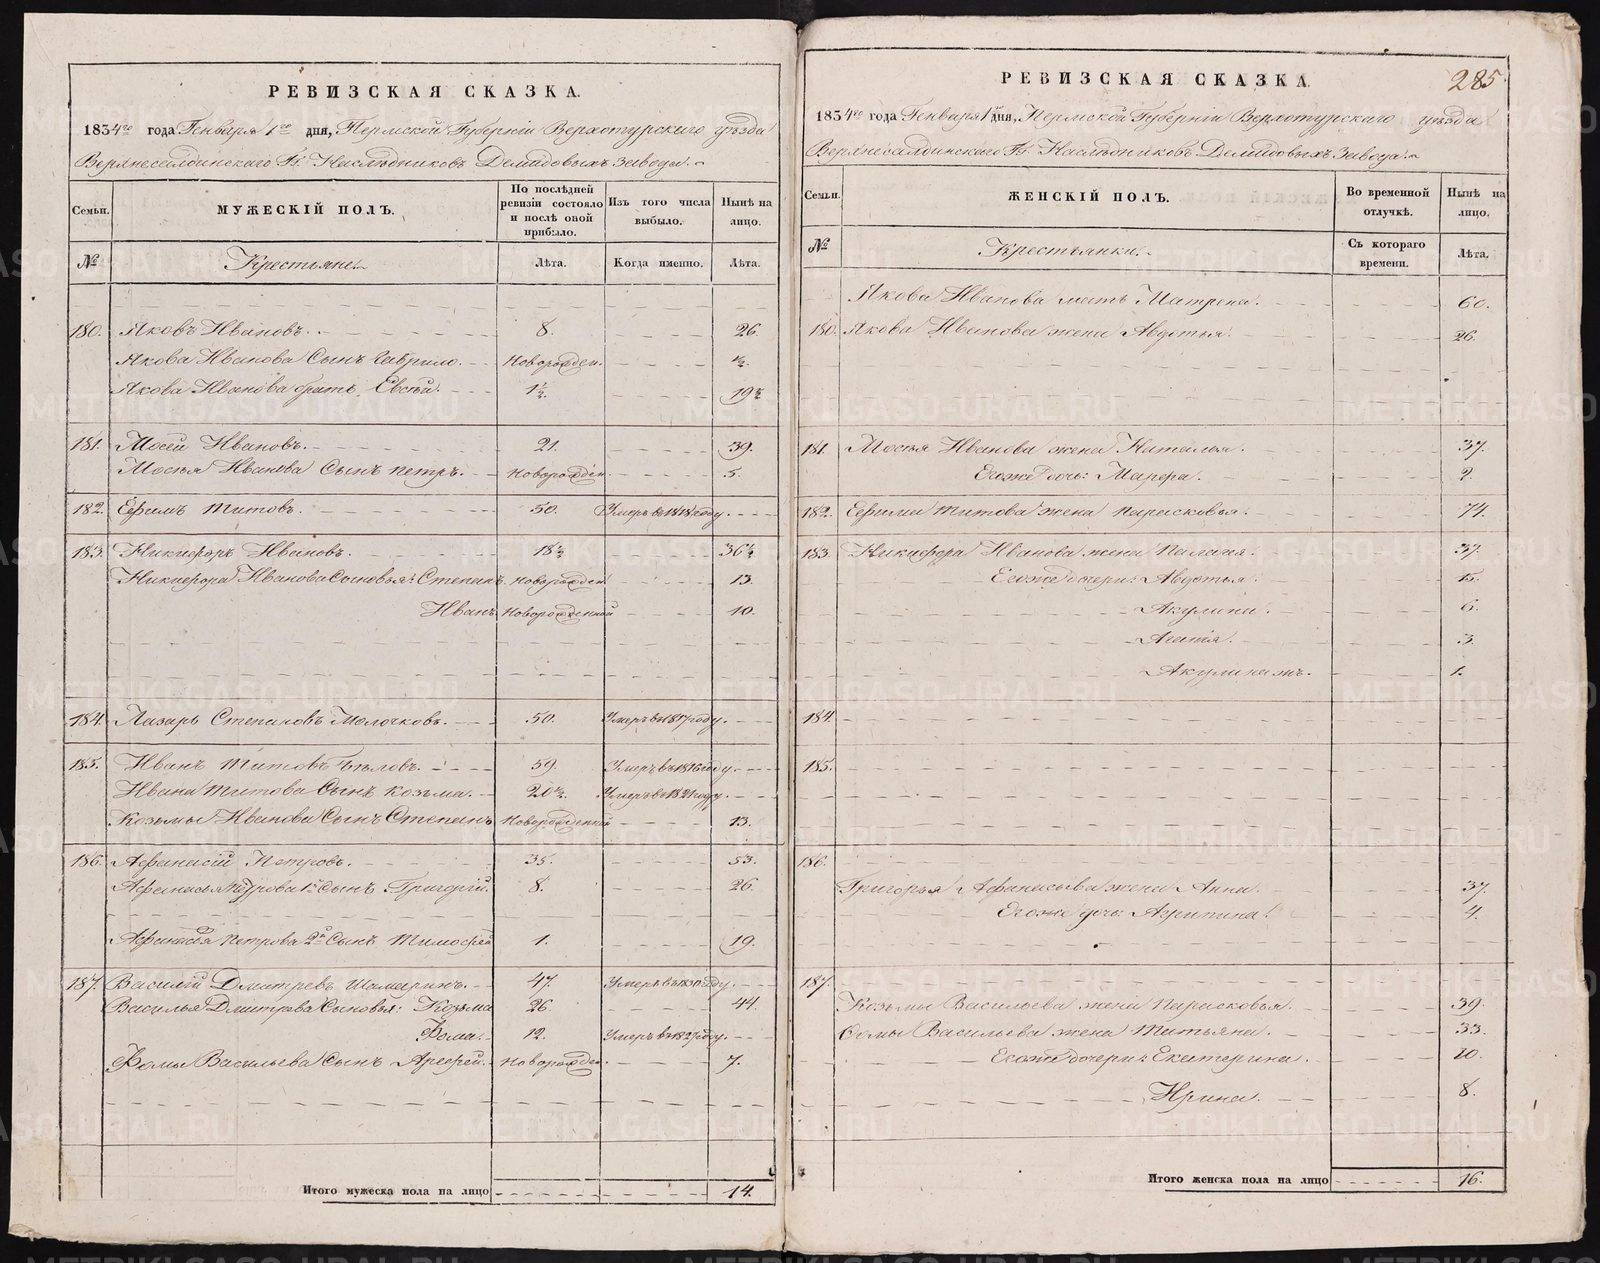 РЕВИЗСКАЯ СКАЗКА.
1834го года Генваря 1го дня, Пермской Губерніи Верхотурскаго уѣзда
Верхнесалдинскаго Гг. Наслѣдниковъ Демидовыхъ завода.
Семьи. МУЖЕСКІЙ ПОЛЪ. По послѣдней ревизіи состояло и послѣ оной прибыло. Изъ того числа выбыло. Нынѣ на лицо.
№ Крестьяне Лѣта. Когда именно. Лѣта.
180. Яковъ Ивановъ. 8. 26.
Якова Иванова Сынъ Гаврило. Новорожден. ½.
Якова Иванова братъ Евсѣй. 1½. 19½
181. Мосей Ивановъ. 21. 39.
Мосея Иванова Сынъ Петръ. Новорожден 5.
182. Ефимъ Титовъ. 50. Умеръ въ 1818 году.
183. Никифоръ Ивановъ. 18½ 36½
Никифора Иванова Сыновья: Степанъ. Новорожден 13.
Иванъ Новорожденной 10.
184. Лазарь Степановъ Молочковъ. 50. Умеръ въ 1817 году.
185. Иванъ Титовъ Бѣловъ. 59. Умеръ въ 1816 году.
Ивана Титова Сынъ Козьма. 20½. Умеръ въ 1821 году.
Козьмы Иванова Сынъ Степанъ Новорожденной 13.
186. Афанасій Петровъ. 35. 53.
Афанасья Петрова 1й Сынъ Григорій. 8. 26.
Афанасья Петрова 2й Сынъ Тимофей 1. 19.
187. Василій Дмитревъ Шамаринъ. 47. Умеръ въ 1830 году.
Василья Дмитрева Сыновья: Козьма 26. 44.
Фома. 12. Умеръ въ 1827 году.
Фомы Васильева Сынъ Арефей. Новорожден. 7.
Итого мужеска пола на лицо 14.
285.
РЕВИЗСКАЯ СКАЗКА
1834го года Генваря 1го дня, Пермской Губерніи Верхотурскаго уѣзда
Верхнесалдинскаго Гг. Наслѣдниковъ Демидовыхъ завода.
Семьи. ЖЕНСКІЙ ПОЛЪ. Во временной отлучкѣ. Нынѣ на лицо.
№ Крестьянки. Съ котораго времени. Лѣта.
Якова Иванова мать Матрена. 60.
180. Якова Иванова жена Авдотья. 26.
181. Мосея Иванова жена Наталья. 37.
Егоже дочь: Марфа. 2.
182. Ефима Титова жена Парасковья. 74.
183. Никифора Иванова жена Палагея. 37.
Егоже дочери: Авдотья. 15.
Акулина. 6.
Агатія. 3.
Акулина жъ. 1.
184.
185.
186.
Григорья Афанасьева жена Анна 37.
Егоже дочь: Агрипина. 4.
187.
Козьмы Васильева жена Парасковья. 39.
Фомы Васильева жена Татьяна. 33.
Егоже дочери: Екатерина. 10.
Ирина. 8.
Итого женска пола на лицо 16.
METRIKI.GASO-URAL.RU